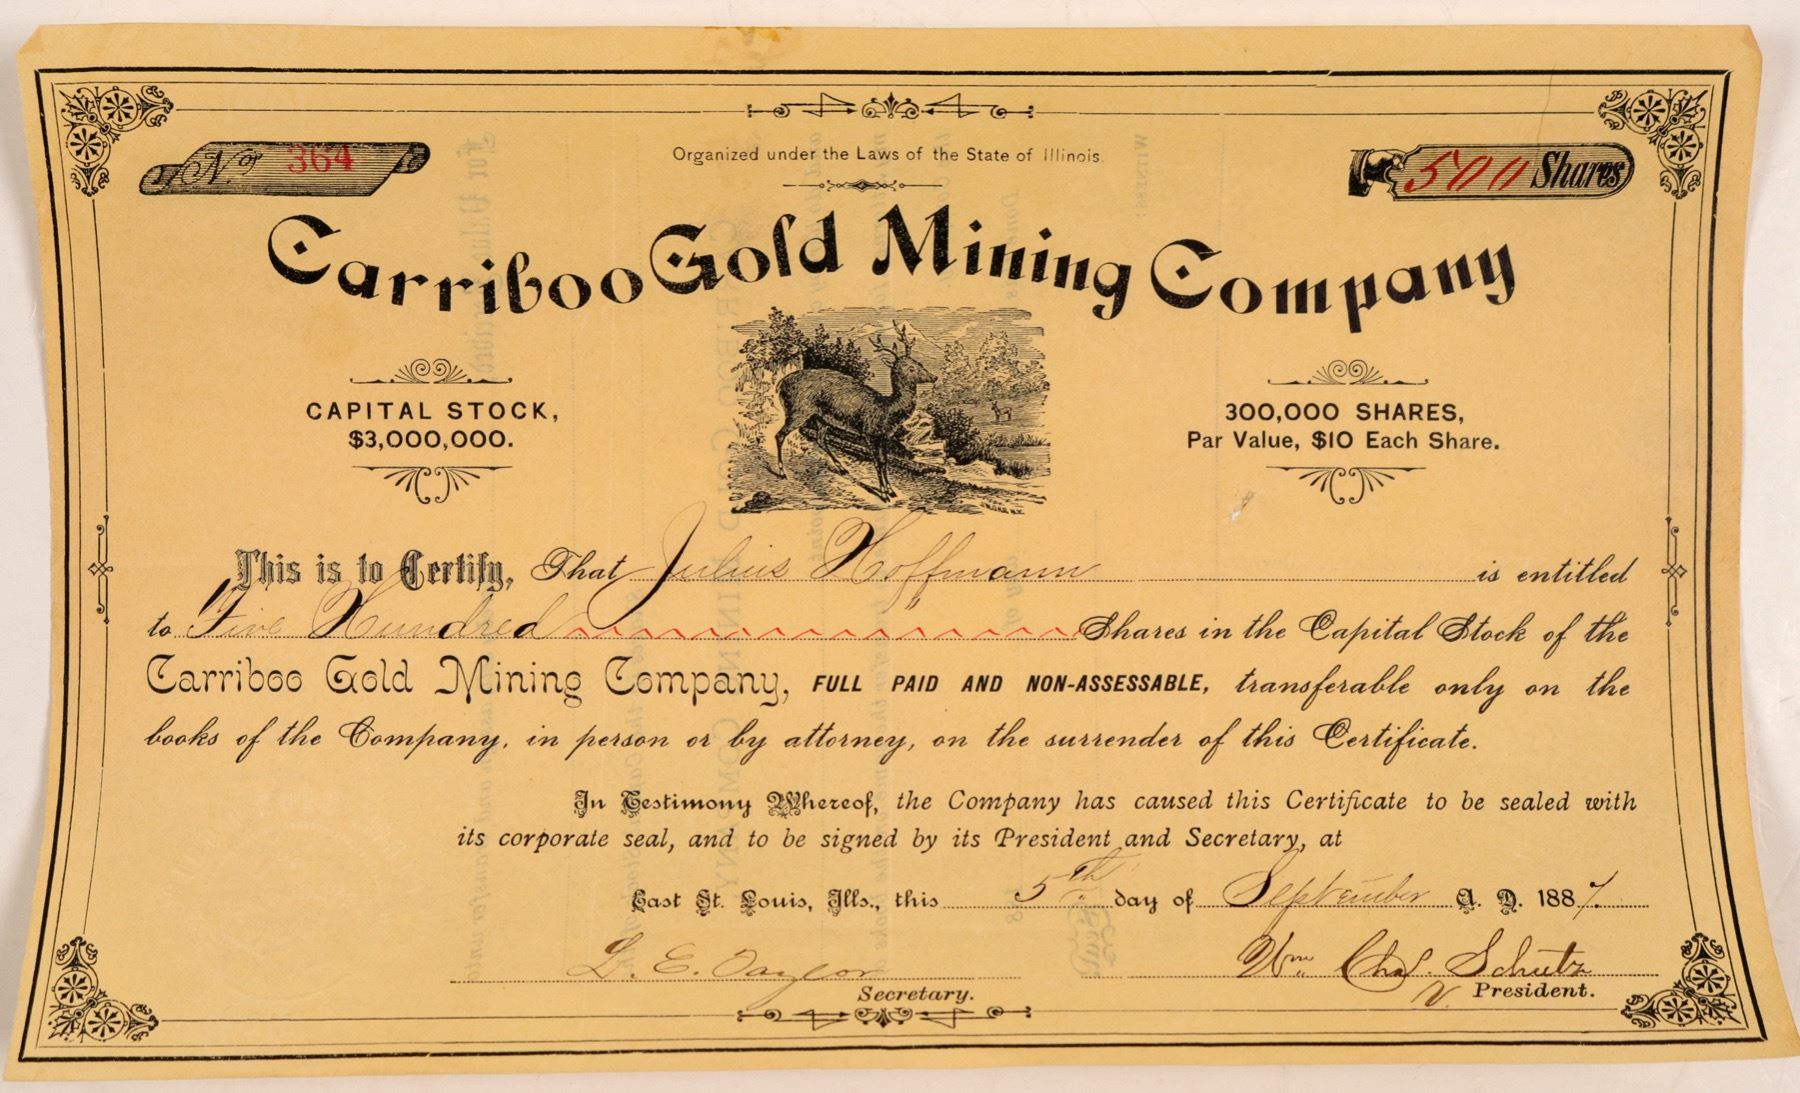 Organized under the Laws of the State of Illinois.
No. 364
500 Shares
Carriboo Gold Mining Company
CAPITAL STOCK,
$3,000,000.
300,000 SHARES,
Par Value, $10 Each Share.
This is to Certify, That Julius Hoffmann is entitled
to Five Hundred Shares in the Capital Stock of the
Carriboo Gold Mining Company, FULL PAID AND NON-ASSESSABLE, transferable only on the
books of the Company, in person or by attorney, on the surrender of this Certificate.
In Testimony Whereof, the Company has caused this Certificate to be sealed with
its corporate seal, and to be signed by its President and Secretary, at
East St. Louis, Ills., this 5th day of September A. D. 1887.
L. E. Taylor
Secretary.
Wm. Chas. Schutz
V. President.